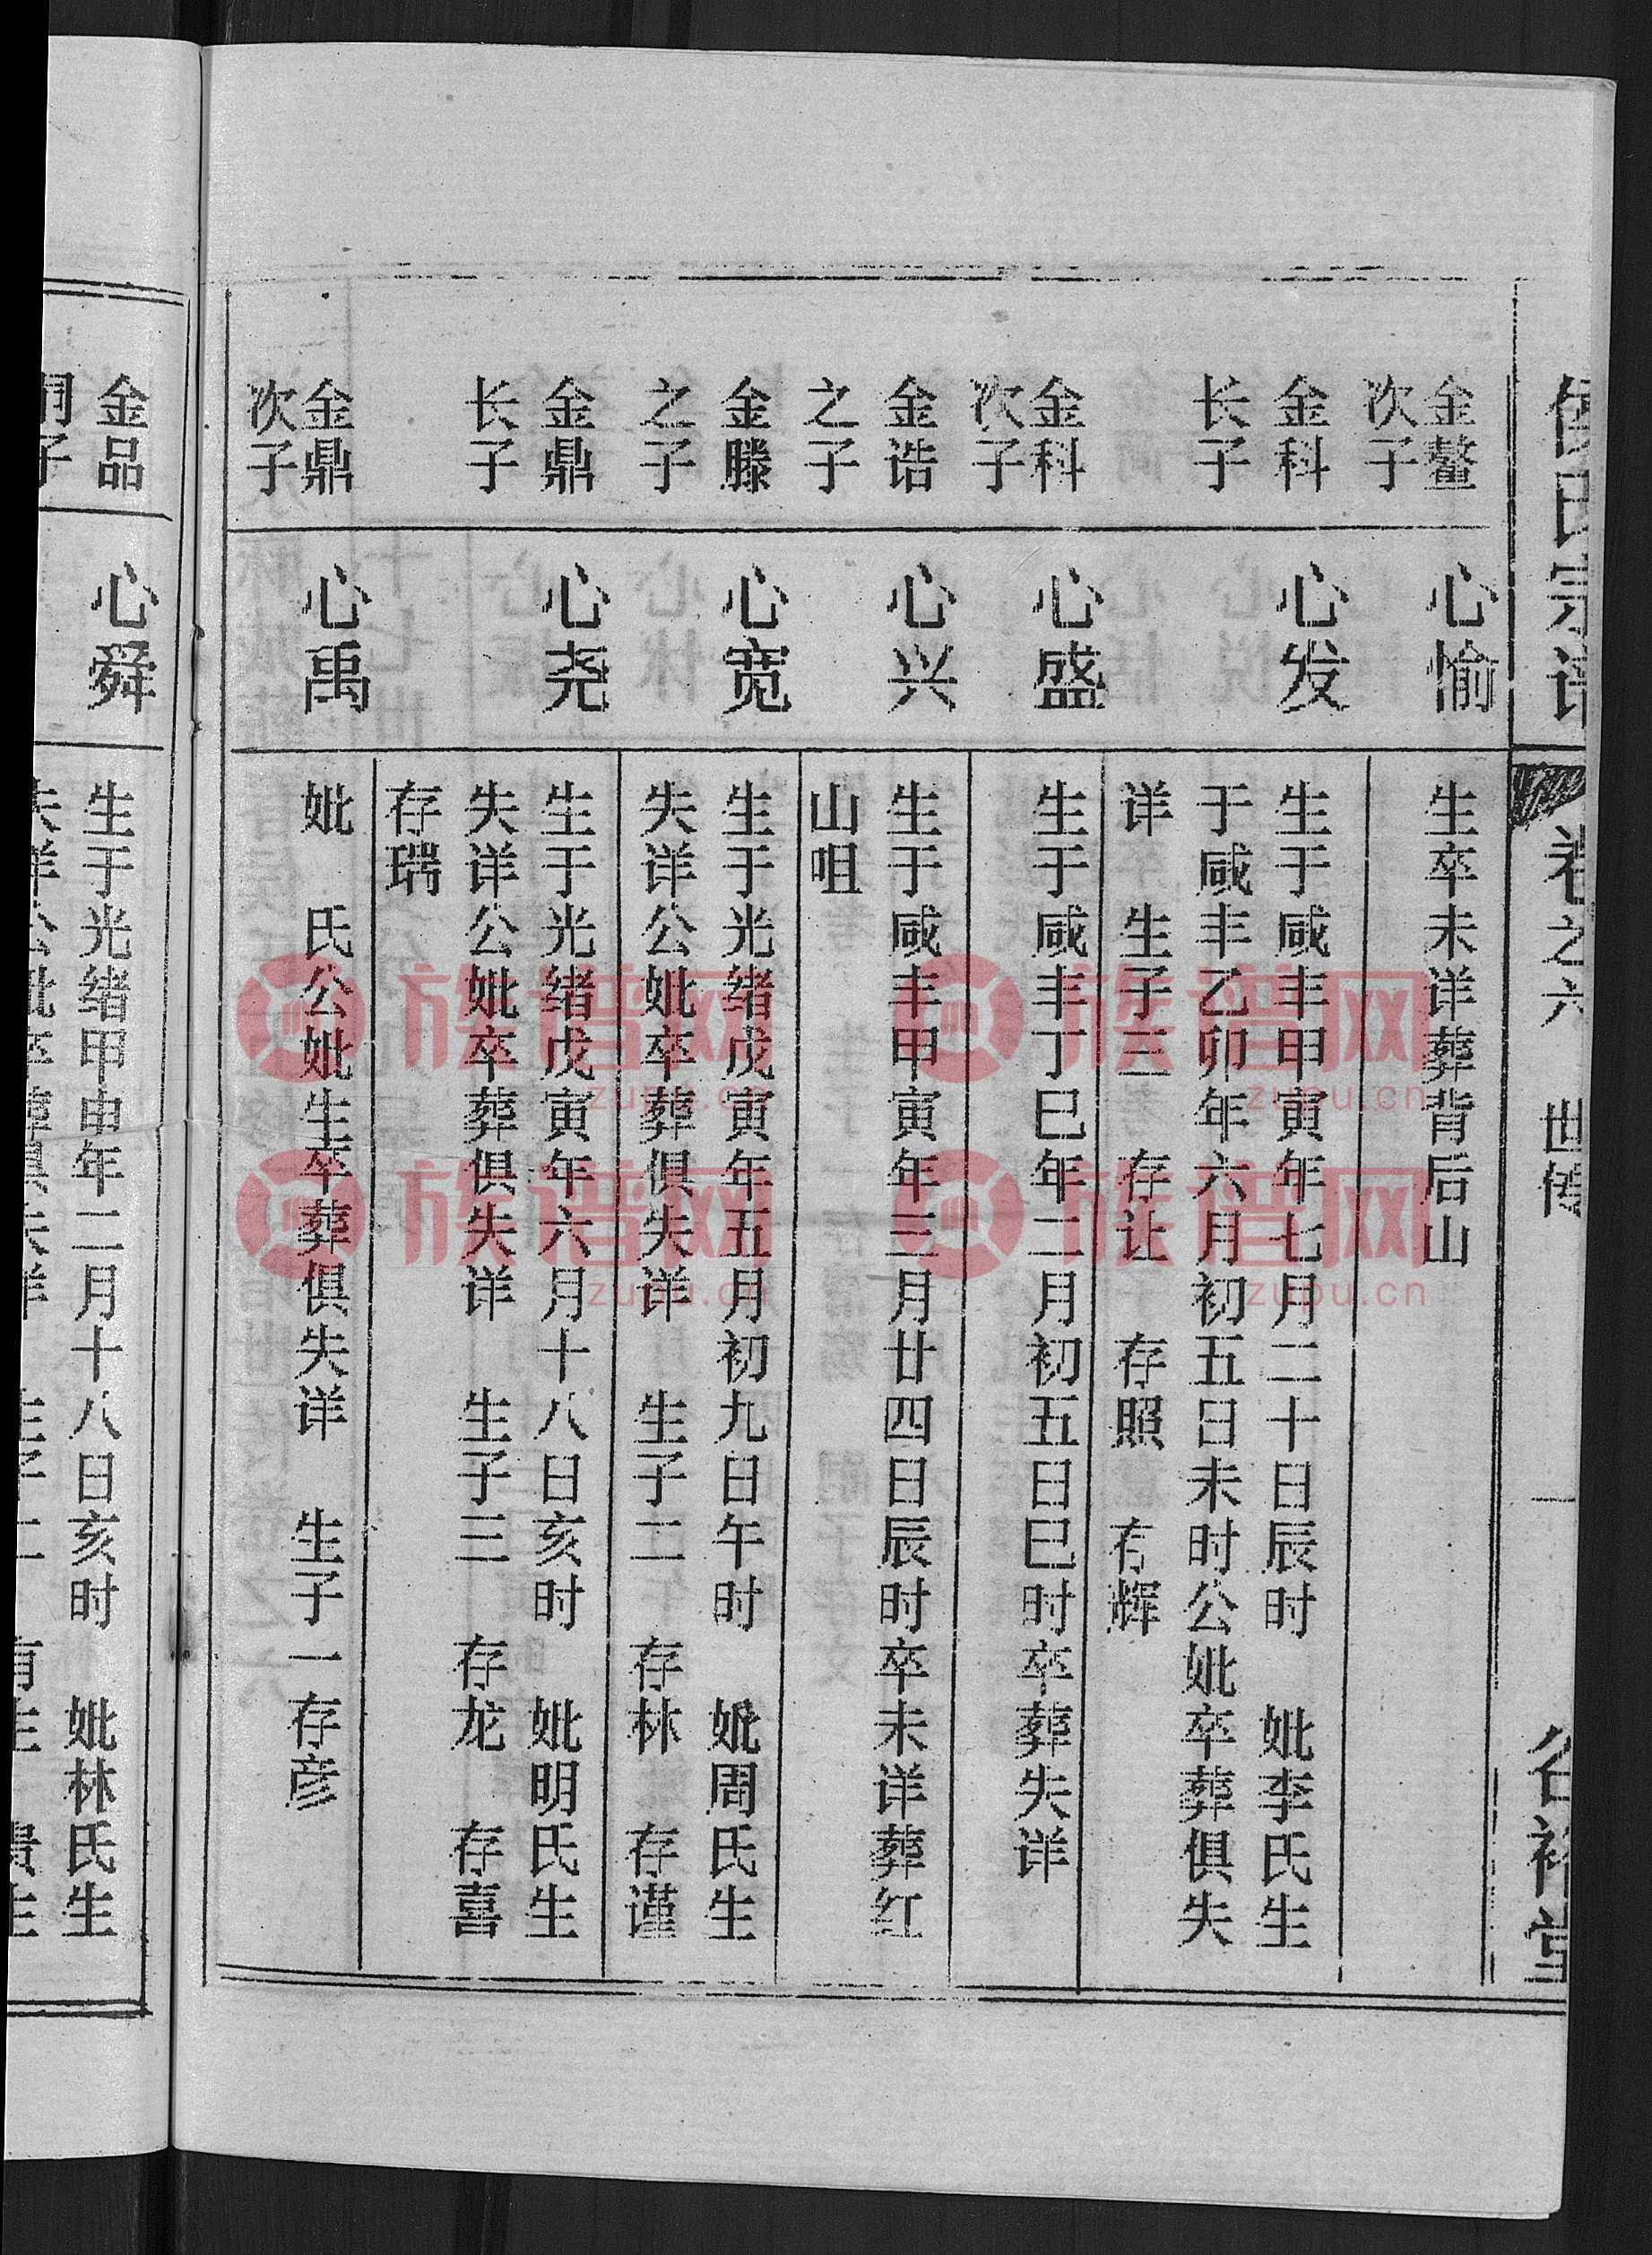 氏宗谱
卷之六 世传
裕堂
金鳌
次子
心愉
生卒未详葬背后山
金科
长子
心发
生于咸丰甲寅年七月二十日辰时 妣李氏生
于咸丰乙卯年六月初五日未时公妣卒葬俱失
详 生子三 存让 存照 存辉
金科
次子
心盛
生于咸丰丁巳年二月初五日巳时卒葬失详
金诰
之子
心兴
生于咸丰甲寅年三月廿四日辰时卒未详葬红
山咀
金滕
之子
心宽
生于光绪戊寅年五月初九日午时 妣周氏生
失详公妣卒葬俱失详 生子二 存林 存谨
金鼎
长子
心尧
生于光绪戊寅年六月十八日亥时 妣明氏生
失详公妣卒葬俱失详 生子三 存龙 存喜
存瑞
金鼎
次子
心禹
妣 氏公妣生卒葬俱失详 生子一存彦
金品
心舜
生于光绪甲申年二月十八日亥时 妣林氏生
族谱网
zupu.cn
族谱网
zupu.cn
族谱网
zupu.cn
族谱网
zupu.cn